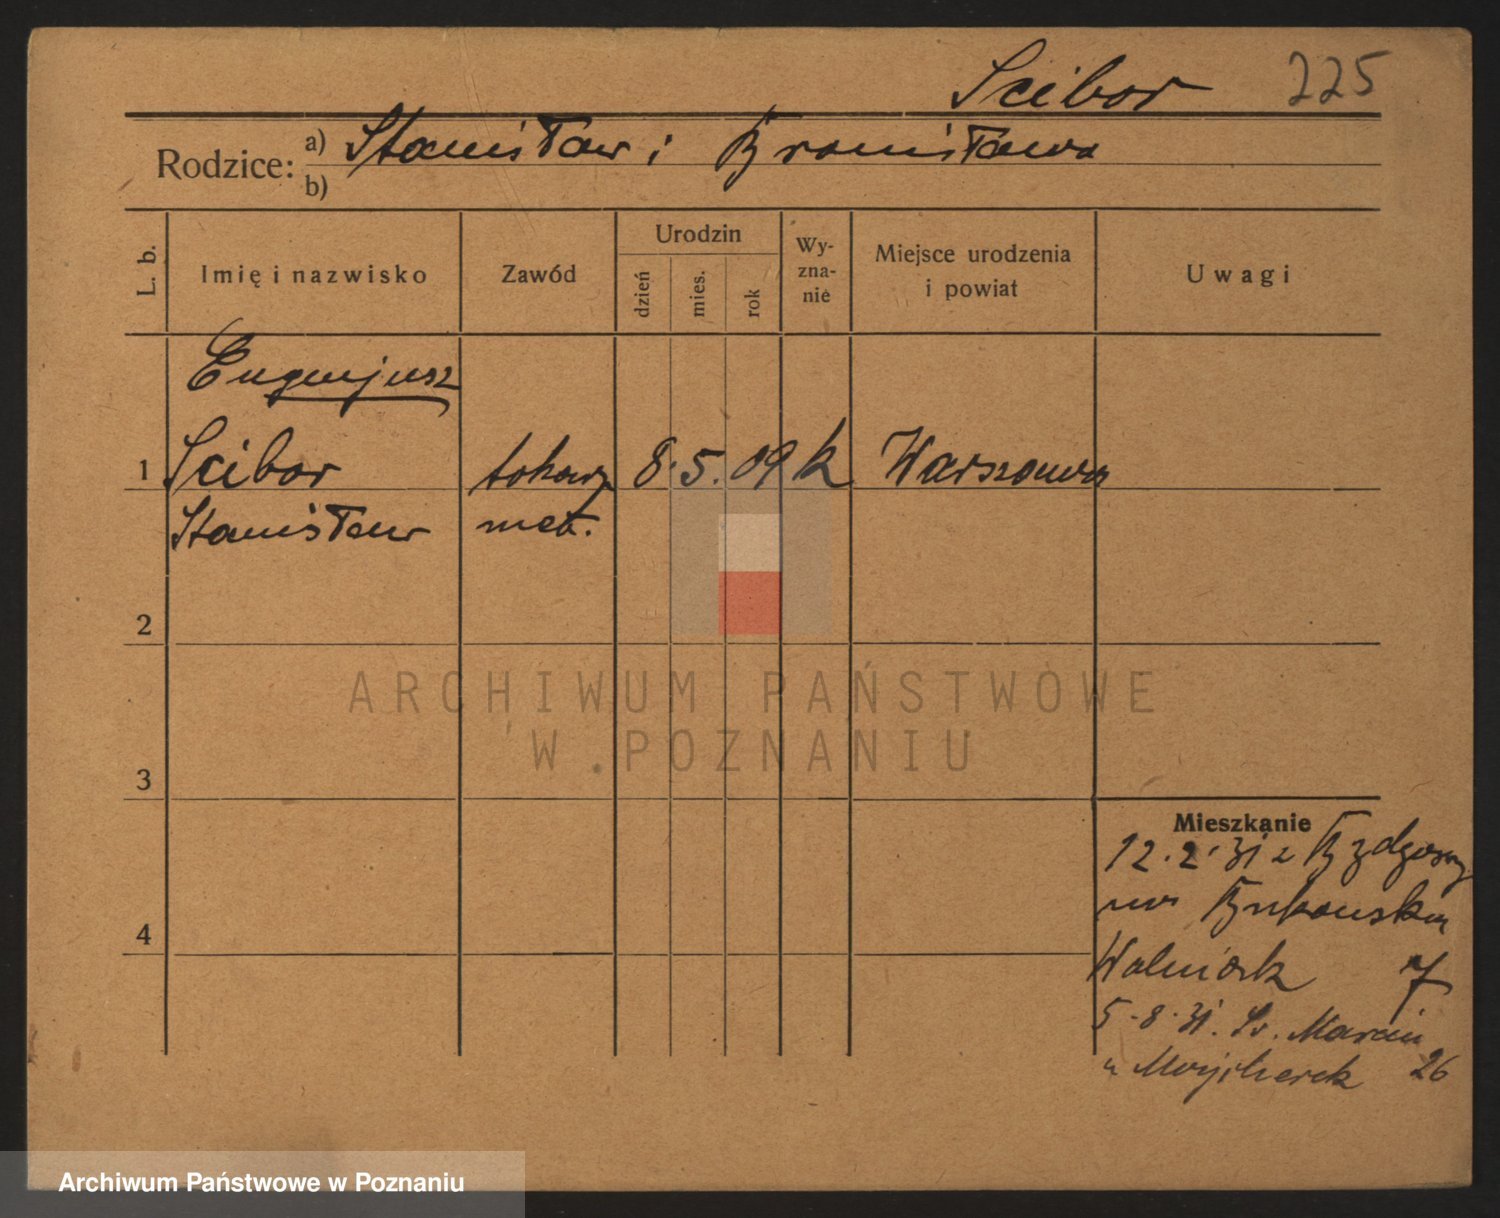 Scibor 225
Rodzice: a) Stanisław i Bronisława
b)
L. b. Imię i nazwisko Zawód Urodzin dzień mies. rok Wy-zna-nie Miejsce urodzenia i powiat Uwagi
Eugenjusz
1 Scibor tokarz 8. 5. 09 k Warszawa
Stanisław met.
2
3
4
Mieszkanie
12.2.31 z Bydgoszczy
na Bukowską
Walniak 7
5.8.31. Św. Marcin
u Majcherek 26
ARCHIWUM PAŃSTWOWE
W POZNANIU
Archiwum Państwowe w Poznaniu